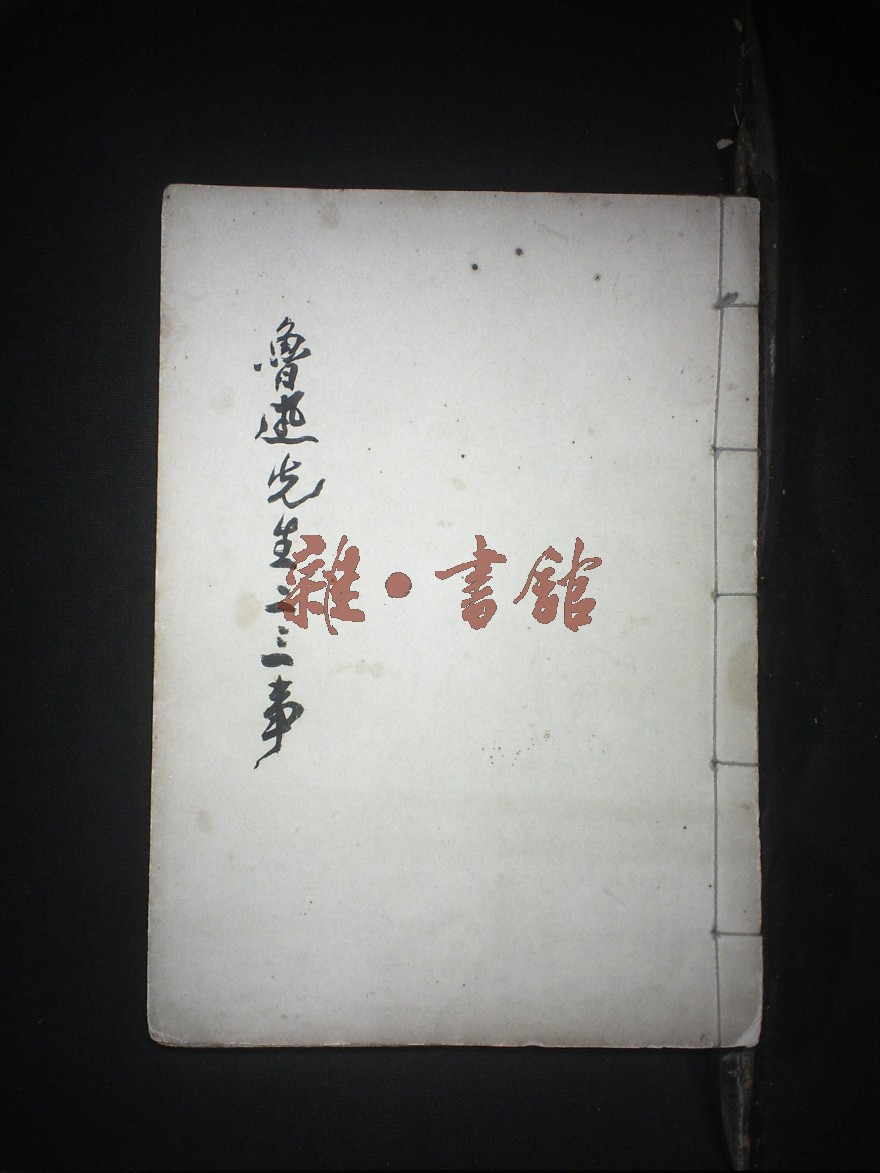 魯迅先生二三事
雜·書館